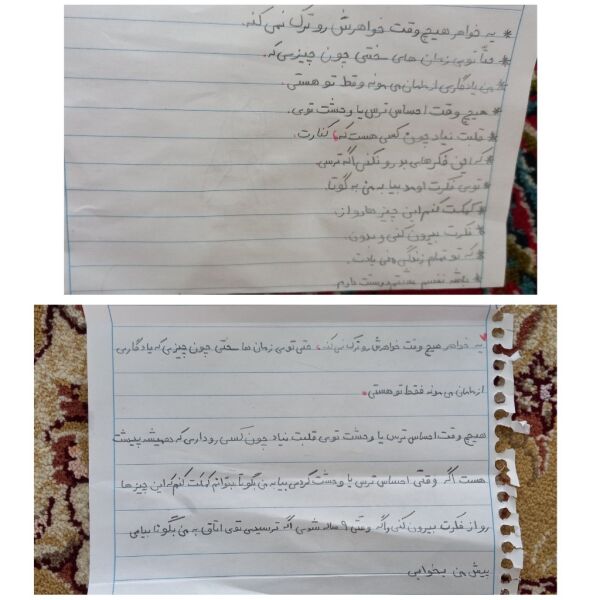 * یه خواهر هیچ وقت خواهرش رو ترک نمی کنه.
* حتا توی زمان های سختی چون چیزیی که.
* من یادگاری از مامان می مونه و فقط تو هستی.
* هیچ وقت احساس ترس یا وحشت توی.
* قلبت نیاد چون کسی هست که کنارت.
* که این فکرهای بد رو نکنی اگه ترسی
* توی فکرت اومد بیا به من بگو تا.
* کمکت کنم این چیز ها رو از.
* فکرت بیرون کنی و بدون.
* که تو تمام زندگی منی باشه.
* باشه نفسم عشقم دوست دارم
یه خواهر هیچ وقت خواهرش رو ترک نمی کنه. حتی توی زمان ها سختی چون چیزیی که یادگاری
از مامان می مونه فقط تو هستی.
هیچ وقت احساس ترس یا وحشت توی قلبت نیاد چون کسی رو داری که همیشه پیشت
هست اگه وقتی احساس ترس یا وحشت کردی بیا به من بگو تا بتوانم کمکت کنم که این چیز ها
رو از فکرت بیرون کنی واگه وقتی ۹ ساله شدی اگه ترسیدی توی اتاق به من بگو تا بیای
پیش من بخوابی